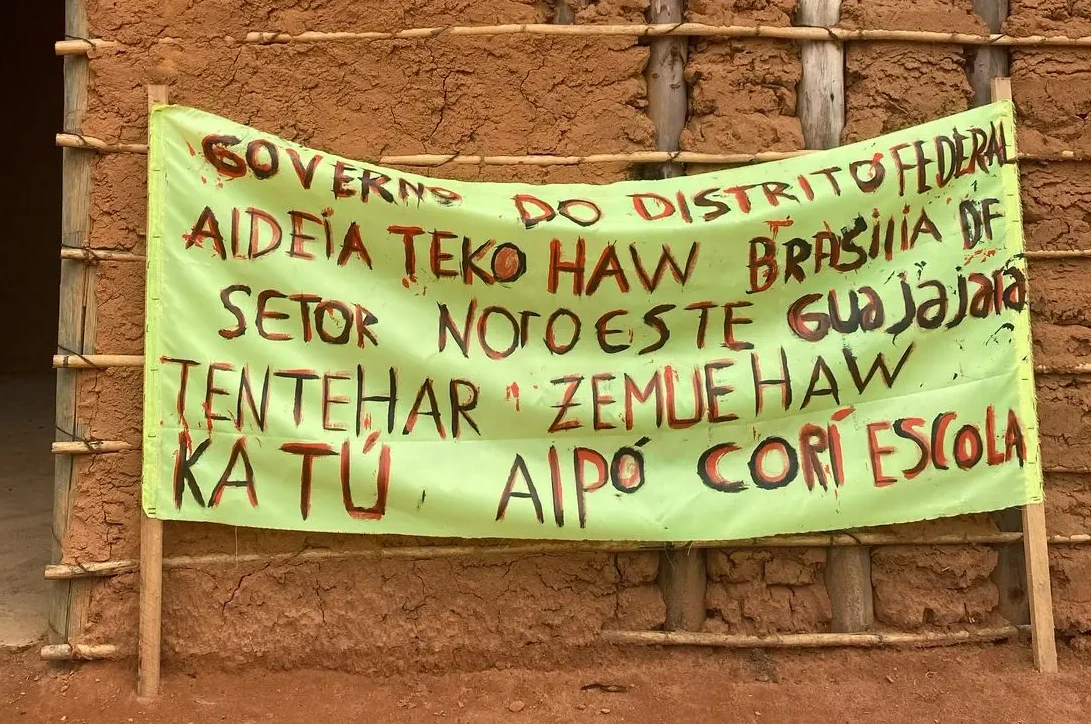 GOVERNO DO DISTRITO FEDERAL
AIDEIA TEKO HAW BRASIIIA DF
SETOR NOROESTE GUAJAJARA
TENTEHAR ZEMUEHAW
KATÚ AIPÓ CORÍ ESCOLA